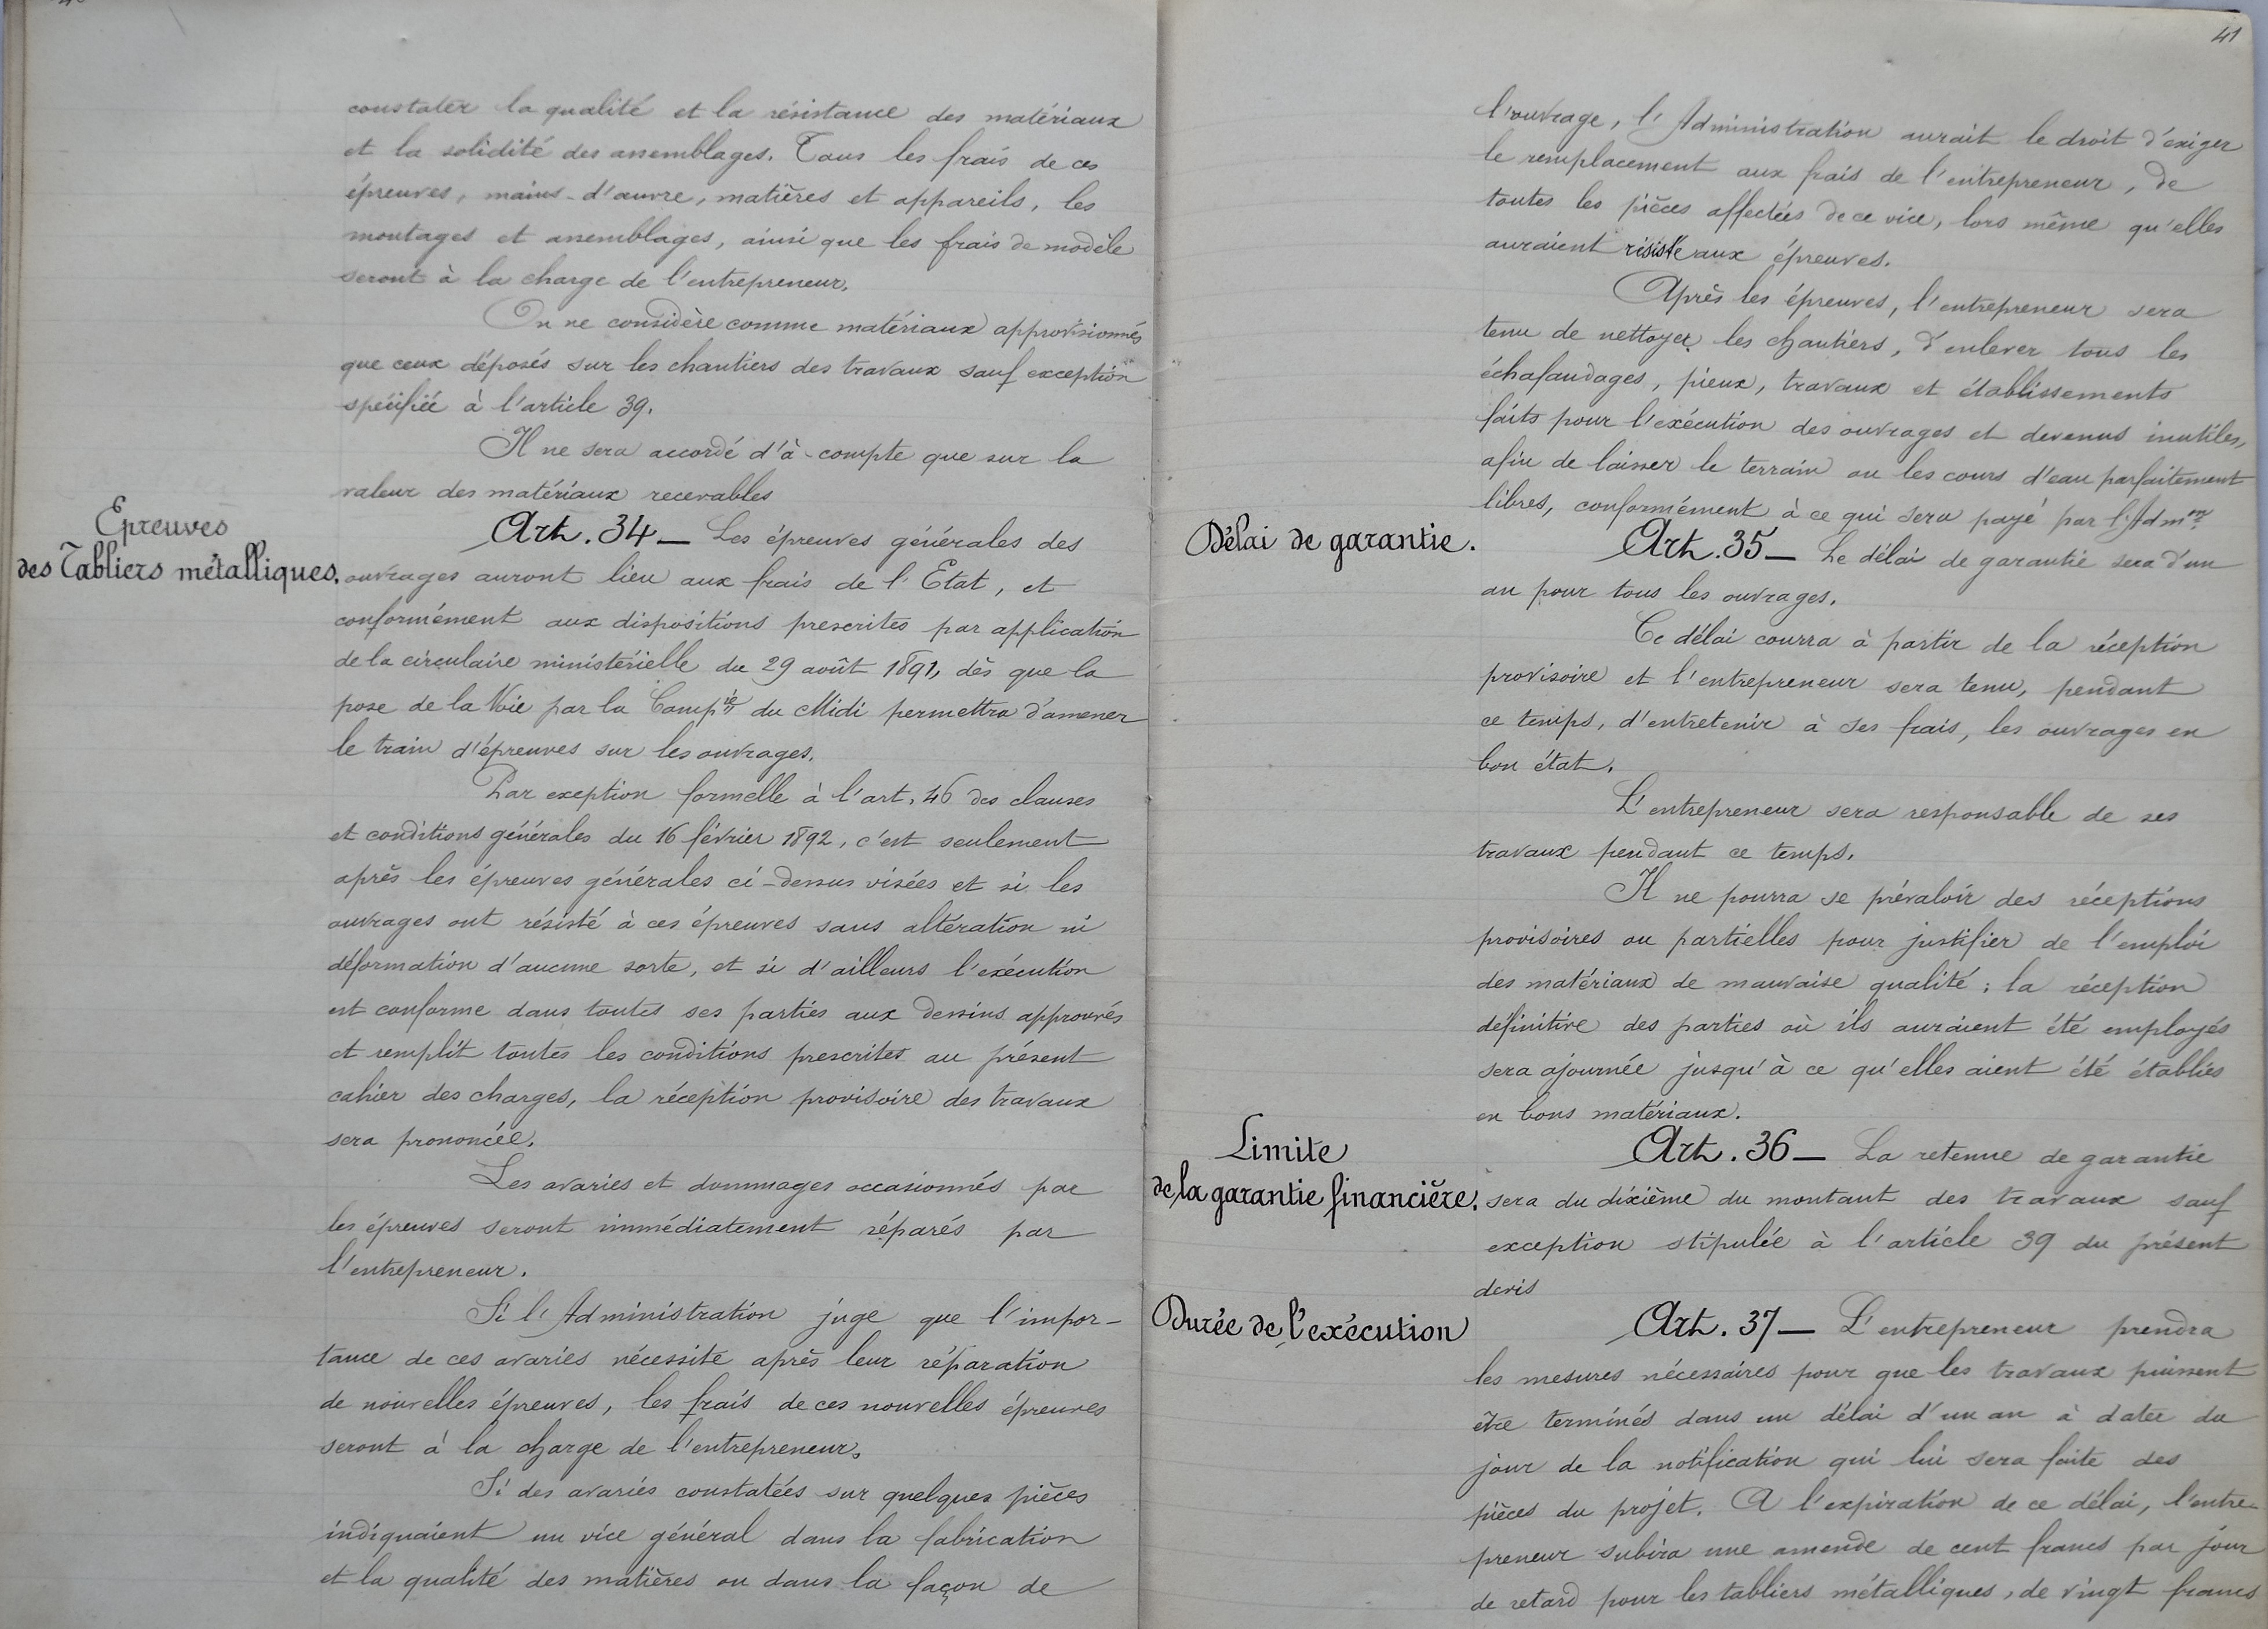 constater la qualité et la résistance des matériaux
et la solidité des assemblages. Tous les frais de ces
épreuves, mains-d'œuvre, matières et appareils, les
montages et assemblages, ainsi que les frais de modèle
seront à la charge de l'entrepreneur.
On ne considère comme matériaux approvisionnés
que ceux déposés sur les chantiers des travaux sauf exception
spécifiée à l'article 39.
Il ne sera accordé d'à-compte que sur la
valeur des matériaux recevables
Epreuves
des Tabliers métalliques.
Art. 34 — Les épreuves générales des
ouvrages auront lieu aux frais de l'Etat, et
conformément aux dispositions prescrites par application
de la circulaire ministérielle du 29 août 1891, dès que la
pose de la Voie par la Compie du Midi permettra d'amener
le train d'épreuves sur les ouvrages.
Par exeption formelle à l'art. 46 des clauses
et conditions générales du 16 février 1892, c'est seulement
après les épreuves générales ci-dessus visées et si les
ouvrages ont résisté à ces épreuves sans altération ni
déformation d'aucune sorte, et si d'ailleurs l'exécution
est conforme dans toutes ses parties aux dessins approuvés
et remplit toutes les conditions prescrites au présent
cahier des charges, la réception provisoire des travaux
sera prononcée.
Les avaries et dommages occasionnés par
les épreuves seront immédiatement réparés par
l'entrepreneur.
Si l'Administration juge que l'impor-
tance de ces avaries nécessite après leur réparation
de nouvelles épreuves, les frais de ces nouvelles épreuves
seront à la charge de l'entrepreneur.
Si des avaries constatées sur quelques pièces
indiquaient un vice général dans la fabrication
et la qualité des matières ou dans la façon de
41
l'ouvrage, l'Administration aurait le droit d'exiger
le remplacement aux frais de l'entrepreneur, de
toutes les pièces affectées de ce vice, lors même qu'elles
auraient résisté aux épreuves.
Après les épreuves, l'entrepreneur sera
tenu de nettoyer les chantiers, d'enlever tous les
échafaudages, pieux, travaux et établissements
faits pour l'exécution des ouvrages et devenus inutiles,
afin de laisser le terrain ou les cours d'eau parfaitement
libres, conformément à ce qui sera payé par l'Admon
Délai de garantie.
Art. 35 — Le délai de garantie sera d'un
an pour tous les ouvrages.
Ce délai courra à partir de la réception
provisoire et l'entrepreneur sera tenu, pendant
ce temps, d'entretenir à ses frais, les ouvrages en
bon état.
L'entrepreneur sera responsable de ses
travaux pendant ce temps.
Il ne pourra se prévaloir des réceptions
provisoires ou partielles pour justifier de l'emploi
des matériaux de mauvaise qualité ; la réception
définitive des parties où ils auraient été employés
sera ajournée jusqu'à ce qu'elles aient été établies
en bons matériaux.
Limite
de la garantie financière.
Art. 36 — La retenue de garantie
sera du dixième du montant des travaux sauf
exception stipulée à l'article 39 du présent
devis
Durée de l'exécution
Art. 37 — L'entrepreneur prendra
les mesures nécessaires pour que les travaux puissent
être terminés dans un délai d'un an à dater du
jour de la notification qui lui sera faite des
pièces du projet. A l'expiration de ce délai, l'entre-
preneur subira une amende de cent francs par jour
de retard pour les tabliers métalliques, de vingt francs